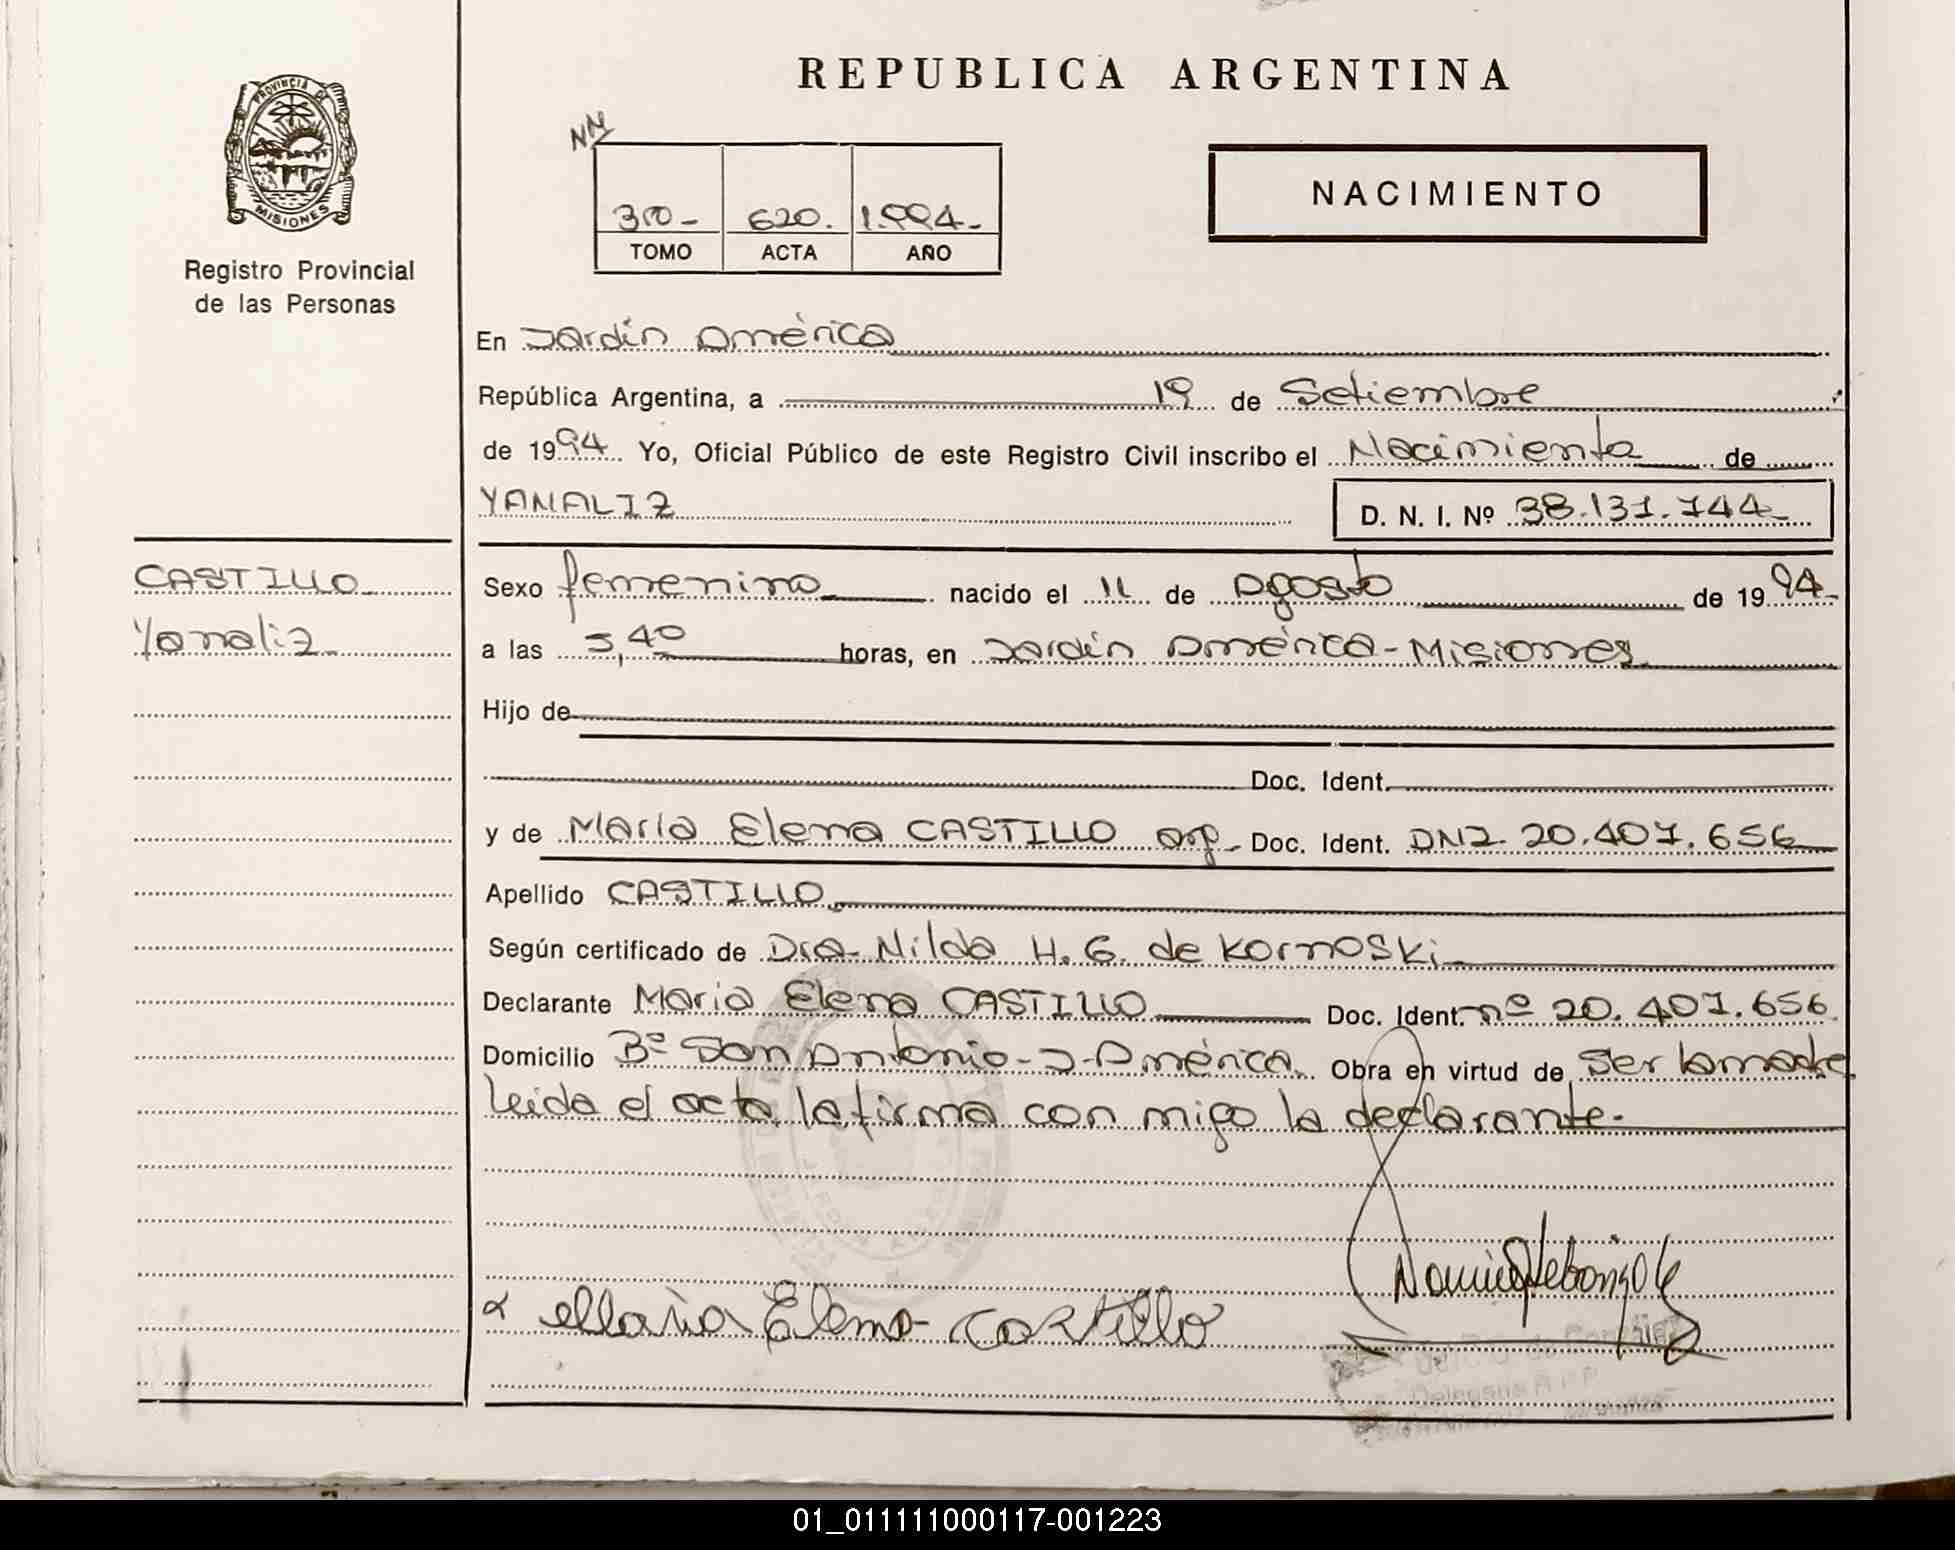 REPUBLICA ARGENTINA
PROVINCIA DE
MISIONES
Registro Provincial
de las Personas
NN
310- 620. 1.994-
TOMO ACTA AÑO
NACIMIENTO
En Jardín América
República Argentina, a 19 de Setiembre
de 1994 Yo, Oficial Público de este Registro Civil inscribo el Nacimiento de
YANALIZ D. N. I. Nº 38.131.744-
CASTILLO
Yanaliz
Sexo femenino nacido el 11 de Agosto de 1994-
a las 5,40 horas, en Jardín América-Misiones
Hijo de
Doc. Ident.
y de María Elena CASTILLO arg- Doc. Ident. DNI. 20.407.656
Apellido CASTILLO
Según certificado de Dra. Nilda H. G. de Kornoski
Declarante Maria Elena CASTILLO Doc. Ident. nº 20.407.656
Domicilio Bº San Antonio-J-América. Obra en virtud de Ser la madre
leida el acta, la firma con migo la declarante.-
Maria Elena Castillo
01_011111000117-001223